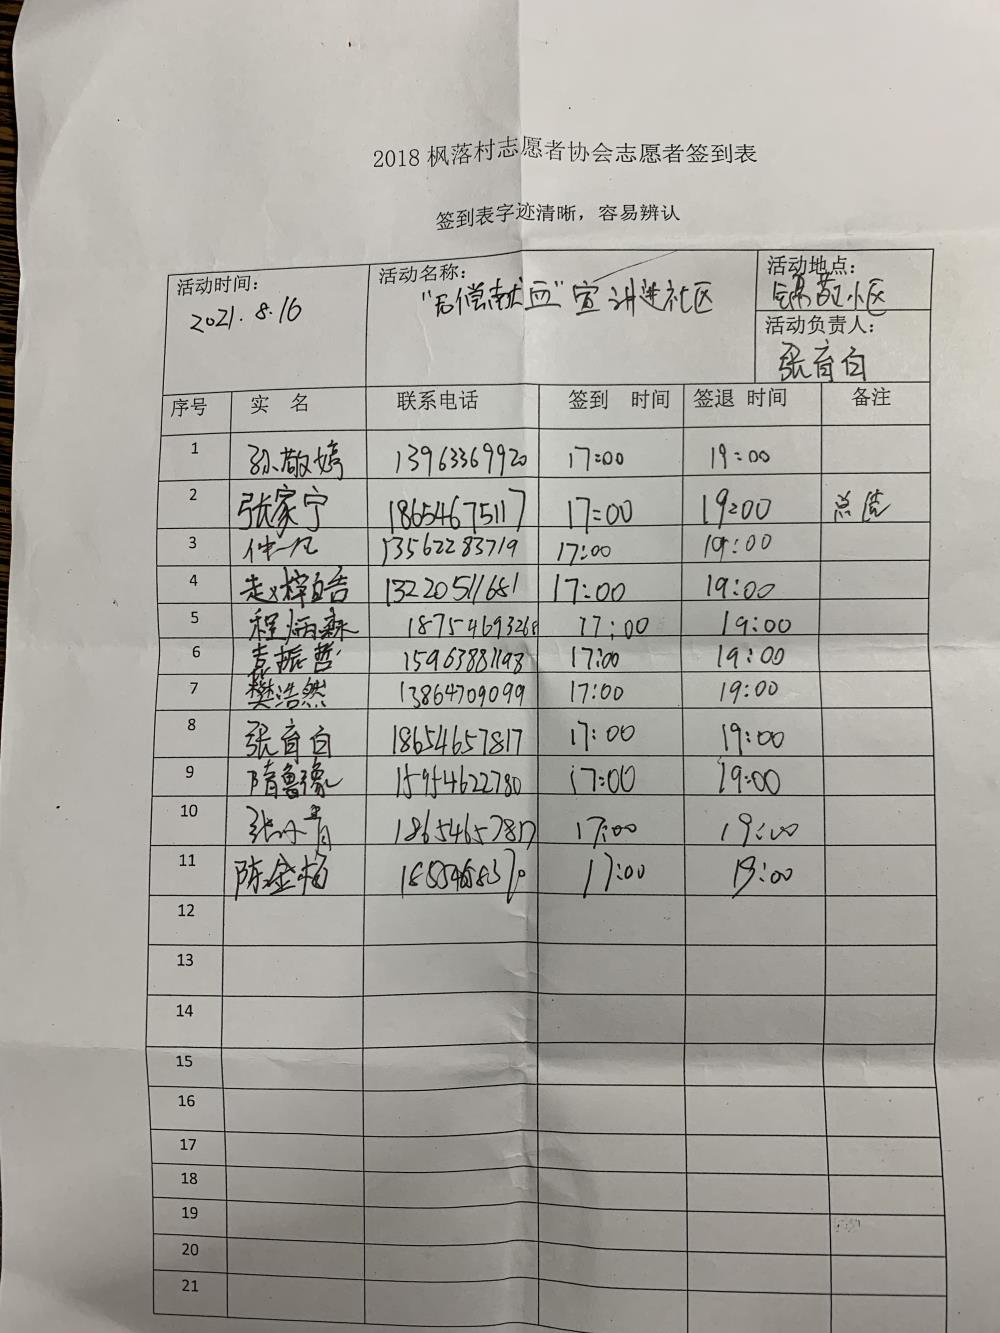 2018 枫落村志愿者协会志愿者签到表
签到表字迹清晰，容易辨认
活动时间：
2021.8.16
活动名称：
"无偿献血"宣讲进社区
活动地点：
锦苑小区
活动负责人：
张育白
序号 实 名 联系电话 签到 时间 签退 时间 备注
1 孙敬婷 13963369920 17:00 19:00
2 张家宁 18654675117 17:00 19:00 总结
3 仲一凡 13562283719 17:00 19:00
4 赵梓皓 13220511681 17:00 19:00
5 程炳森 18754693268 17:00 19:00
6 袁振哲 15963881198 17:00 19:00
7 樊浩然 13864709099 17:00 19:00
8 张育白 18654657817 17:00 19:00
9 隋鲁豫 15954622780 17:00 19:00
10 18654657817 17:00 19:00
11 陈金杨 17:00 19:00
12
13
14
15
16
17
18
19
20
21